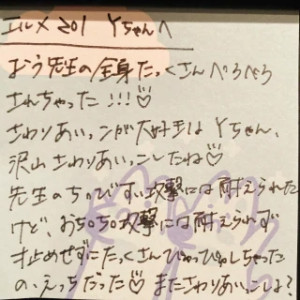 エルメ 201 Yちゃんへ
もう先生の全身たっくさんぺろぺろ
されちゃった!!!♡
さわりあいっこが大好きなYちゃん、
沢山さわりあいっこしたね♡
先生のちくびずい攻撃には耐えられた
けど、おち○ち○攻撃には耐えられず
才止めせずにたっくさんぴゅっぴゅしちゃった
の、えっちだった♡ またさわりあいっこしよ?